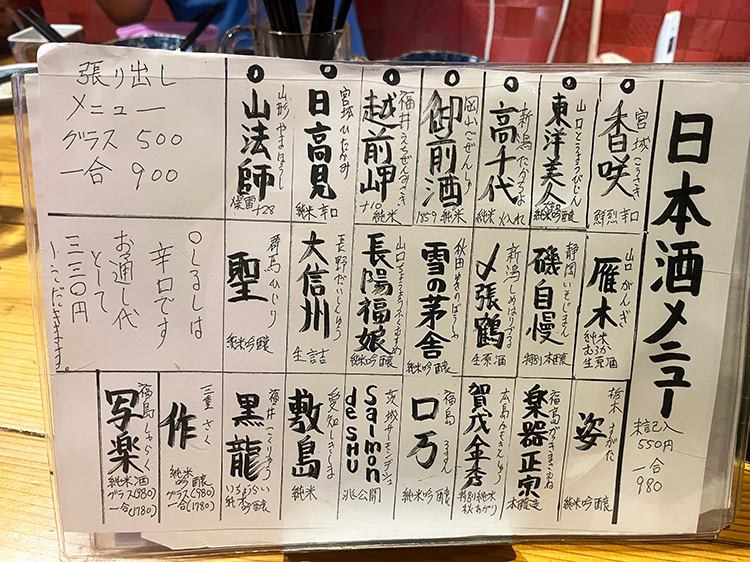 日本酒メニュー
未記入
550円
一合
980
宮城 こうさき
香咲
鮮烈 辛口
山口 とうようびじん
東洋美人
純米吟醸
新潟 たかちよ
高千代
純米 火入れ
岡山 ごぜんしゅ
御前酒
1859 純米
福井 えちぜんみさき
越前岬
+10 純米
宮城 ひたかみ
日高見
純米 辛口
山形 やまほうし
山法師
爆雷 +28
山口 がんぎ
雁木
純米
むろか
生原酒
静岡 いそじまん
磯自慢
特別本醸
新潟 しめはりづる
〆張鶴
生原酒
秋田 ゆきのぼうしゃ
雪の茅舎
純米吟醸
山口 ちょうようふくむすめ
長陽福娘
純米吟醸
長野 だいしんしゅう
大信州
生詰
群馬 ひじり
聖
純米吟醸
栃木 すがた
姿
純米吟醸
福島 がっきまさむね
楽器正宗
本醸造
広島 かもきんしゅう
賀茂金秀
特別純米
秋あがり
福島 ろまん
ロ万
純米吟醸
茨城 サーモンデシュ
Salmon
de SHU
非公開
愛知 しきしま
敷島
純米
福井 こくりゅう
黒龍
いっちょうらい
純米吟醸
三重 ざく
作
純米
吟醸
グラス(980)
一合(1780)
福島 しゃらく
写楽
純米酒
グラス(980)
一合(1780)
張り出し
メニュー
グラス 500
一合 900
○しるしは
辛口です
お通し代
として
三三〇円
いただきます。